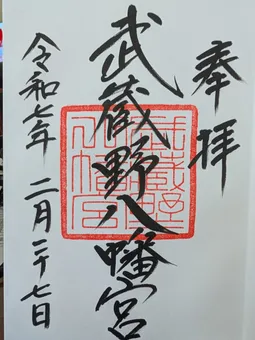 奉拝
武蔵野八幡宮
武蔵野八幡宮
令和七年 二月二十七日